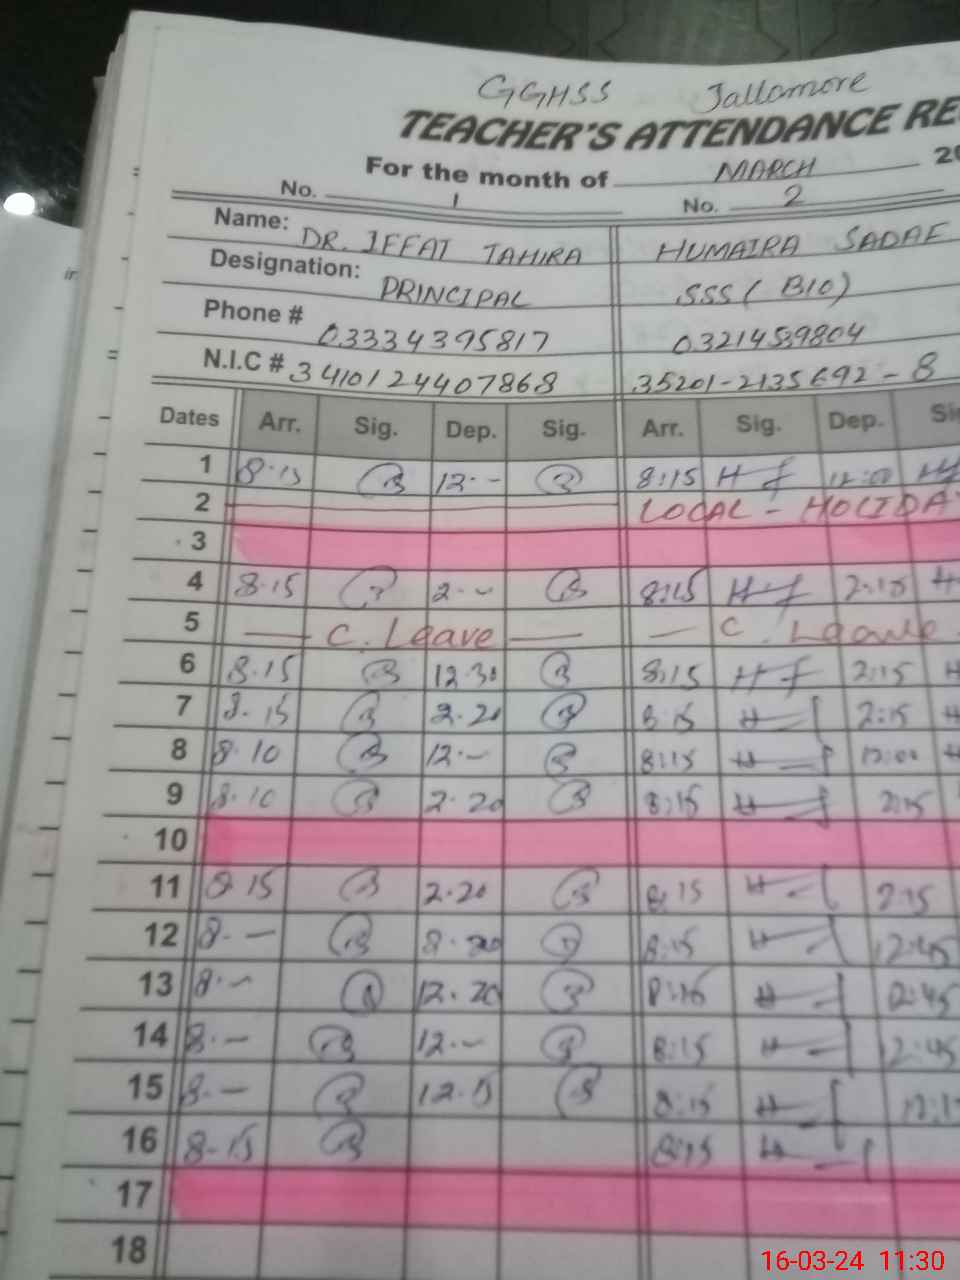 GGHSS Jallomore
TEACHER'S ATTENDANCE RE
For the month of MARCH 20
No. 1 No. 2
Name: DR. IFFAT TAHIRA HUMAIRA SADAF
Designation: PRINCIPAL SSS (BIO)
Phone # 03334395817 03214589804
N.I.C # 3410124407868 35201-2135692-8
Dates Arr. Sig. Dep. Sig. Arr. Sig. Dep. Si
1 8.15 12.-- 8:15 12:00
2 LOCAL - HOLIDA
3
4 8.15 2.-- 8:15 2:15
5 C. Leave C. Leave
6 8.15 12.30 8:15 2:15
7 8.15 2.20 8:15 2:15
8 8.10 12.-- 8:15 12:00
9 8.10 2.20 8:15 2:15
10
11 8.15 2.20 8:15 2:15
12 8.-- 8:15 12:45
13 8.-- 12.20 8:15 12:45
14 8.-- 12.-- 8:15 12:45
15 8.-- 12.15 8:15
16 8-15 8:15
17
18
16-03-24 11:30